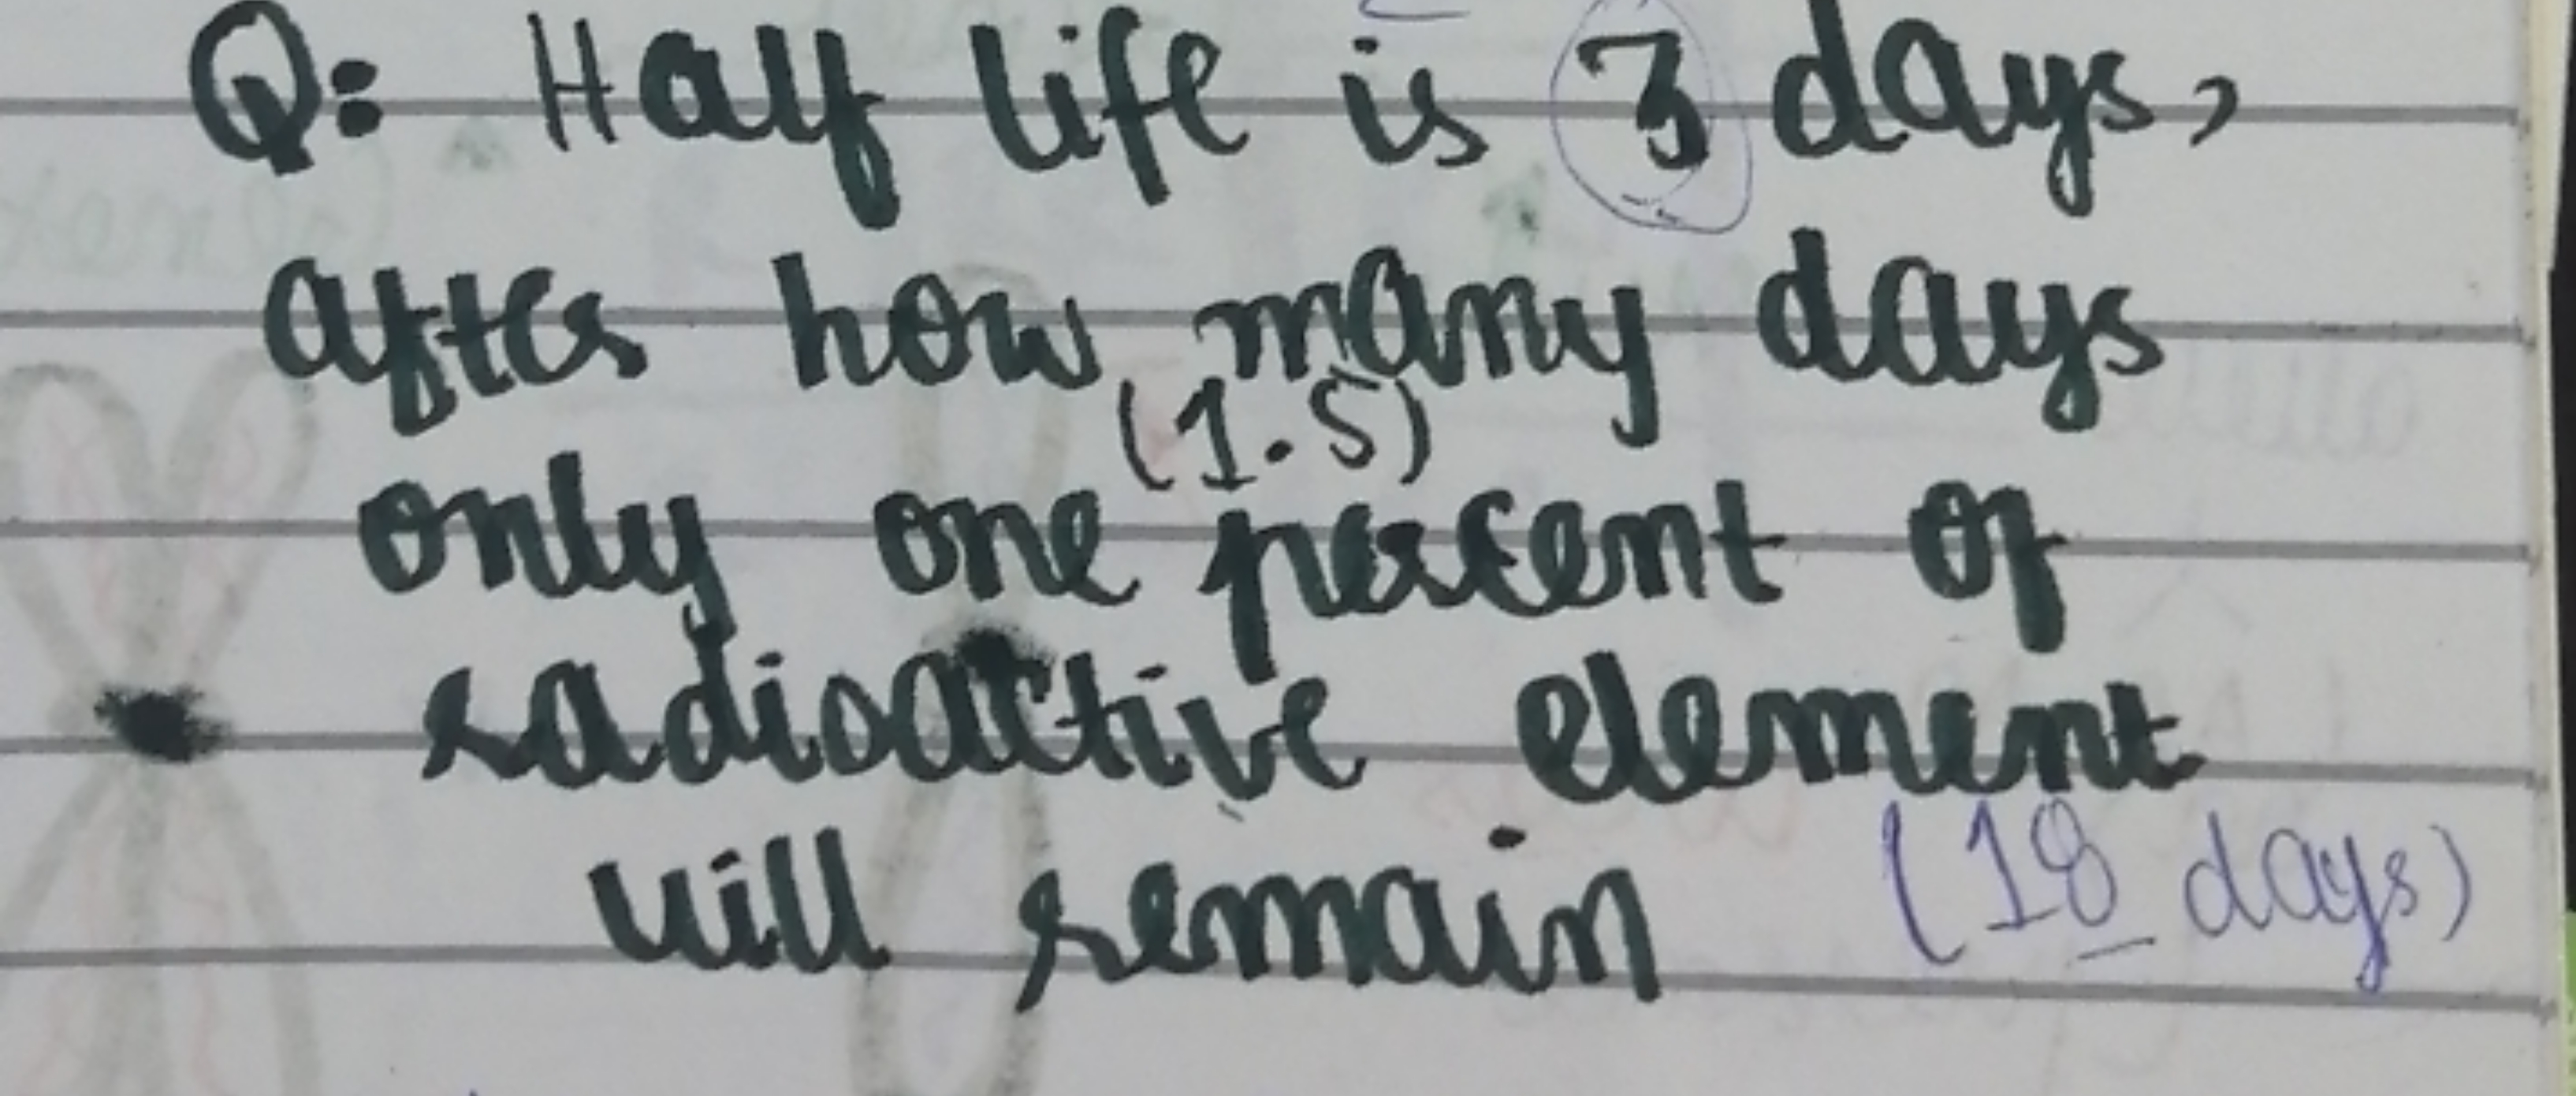 Q: Half life is 3 days,
after how many days
(1.5)
only one percent of
radioactive element
will remain
(18 days)